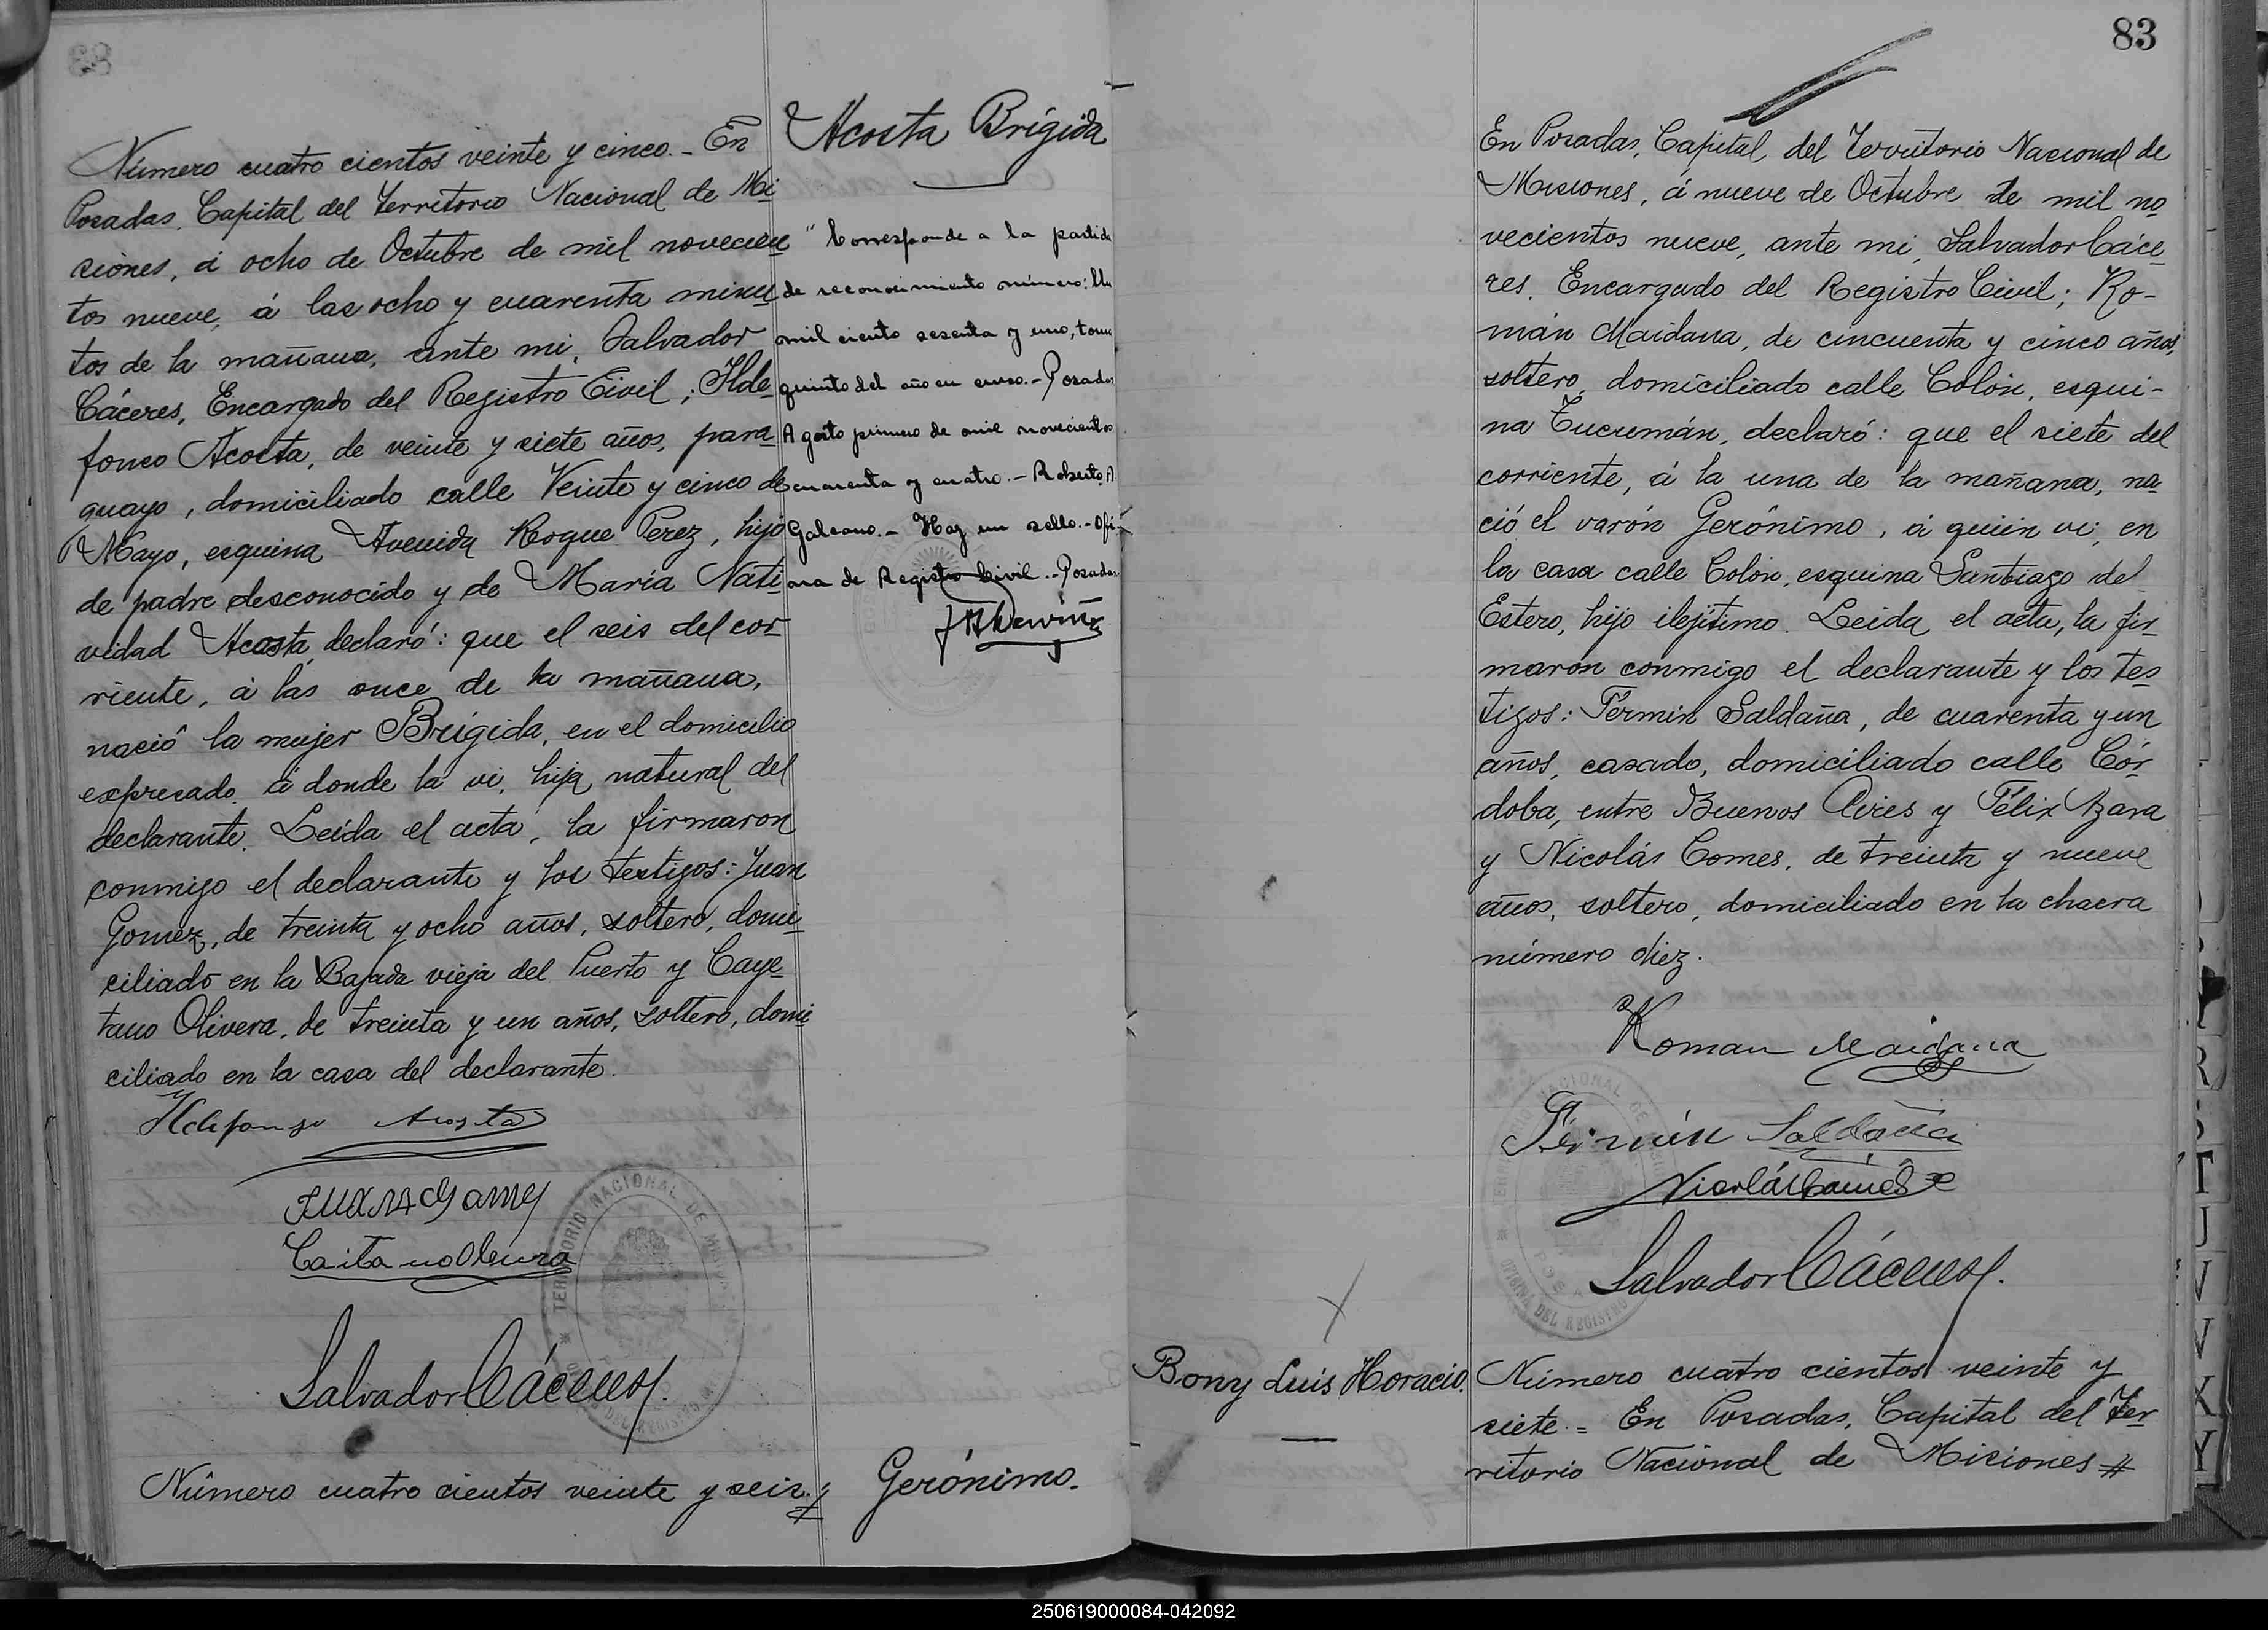 Número cuatro cientos veinte y cinco. - En
Posadas, Capital del Territorio Nacional de Mi
siones, á ocho de Octubre de mil novecien
tos nueve, á las ocho y cuarenta minu
tos de la mañana, ante mi, Salvador
Cáceres, Encargado del Registro Civil; Ilde
fonso Acosta, de veinte y siete años, para
guayo, domiciliado calle Veinte y cinco de
Mayo, esquina Avenida Roque Perez, hijo
de padre desconocido y de María Nati
vidad Acosta, declaró: que el seis del cor
riente, á las once de la mañana,
nació la mujer Brígida, en el domicilio
expresado, á donde la vi, hija natural del
declarante. Leida el acta, la firmaron
conmigo el declarante y los testigos: Juan
Gomez, de treinta y ocho años, soltero, domi
ciliado en la Bajada vieja del Puerto y Caye
tano Olivera, de treinta y un años, soltero, domi
ciliado en la casa del declarante.
Ildefonso Acosta
Salvador Cáceres.
Número cuatro cientos veinte y seis. //
Acosta Brígida
" Corresponde a la partida
de reconocimiento número: Un
mil ciento sesenta y uno, tomo
quinto del año en curso. - Posadas
Agosto primero de mil novecientos
cuarenta y cuatro. - Roberto A
Galeano. - Hay un sello. - Ofi-
cina de Registro Civil. - Posadas
TERRITORIO NACIONAL DE MISIONES
DEL REGISTRO
Gerónimo.
83
En Posadas, Capital del Territorio Nacional de
Misiones, á nueve de Octubre de mil no
vecientos nueve, ante mi, Salvador Cáce
res, Encargado del Registro Civil; Ro-
mán Maidana, de cincuenta y cinco años,
soltero, domiciliado calle Colón, esqui-
na Tucumán, declaró: que el siete del
corriente, á la una de la mañana, na
ció el varón Gerónimo, á quien vi, en
la casa calle Colón, esquina Santiago del
Estero, hijo ilejítimo. Leida el acta, la fir
maron conmigo el declarante y los tes
tigos: Fermin Saldaña, de cuarenta y un
años, casado, domiciliado calle Cór
doba, entre Buenos Aires y Félix Azara
y Nicolás Comes, de treinta y nueve
años, soltero, domiciliado en la chacra
número diez.
Roman Maidana
Fermín Saldaña
Salvador Cáceres.
OFICINA DEL REGISTRO
Bony Luis Horacio.
Número cuatro cientos veinte y
siete. = En Posadas, Capital del Ter
ritorio Nacional de Misiones #
250619000084-042092